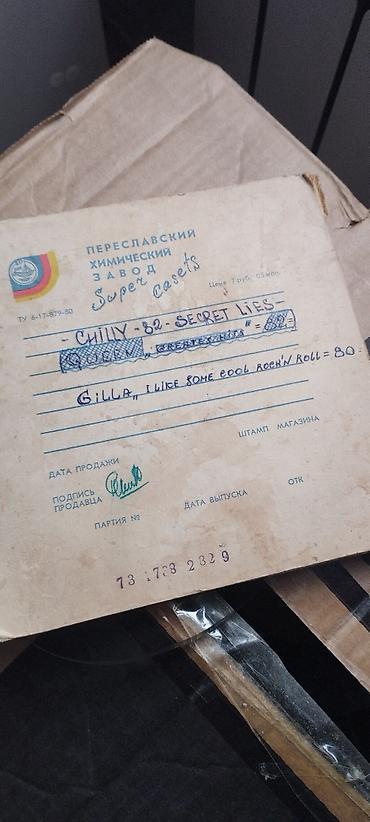 ПЕРЕСЛАВСКИЙ
ХИМИЧЕСКИЙ
ЗАВОД
Super casets
Цена 7 руб. 05 коп.
ТУ 6-17-879-80
- CHILLY - 82 - SECRET LIES -
QUEEN „GREATES HITS" = 82,=
GILLA „ I LIKE SOME COOL ROCK'N ROLL = 80
ШТАМП МАГАЗИНА
ДАТА ПРОДАЖИ
ПОДПИСЬ
ПРОДАВЦА
ДАТА ВЫПУСКА
ОТК
ПАРТИЯ №